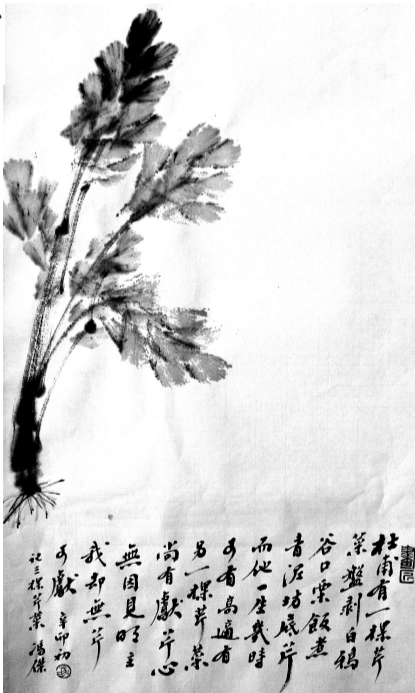 杜甫有一棵芹
菜盤剥白鴉
谷口栗飯煮
青泥坊底芹
而他一座幾時
可有高適有
另一棵芹菜
尚有獻芹心
無因見明主
我却無芹
可獻 辛卯初
記三棵芹菜 馮傑